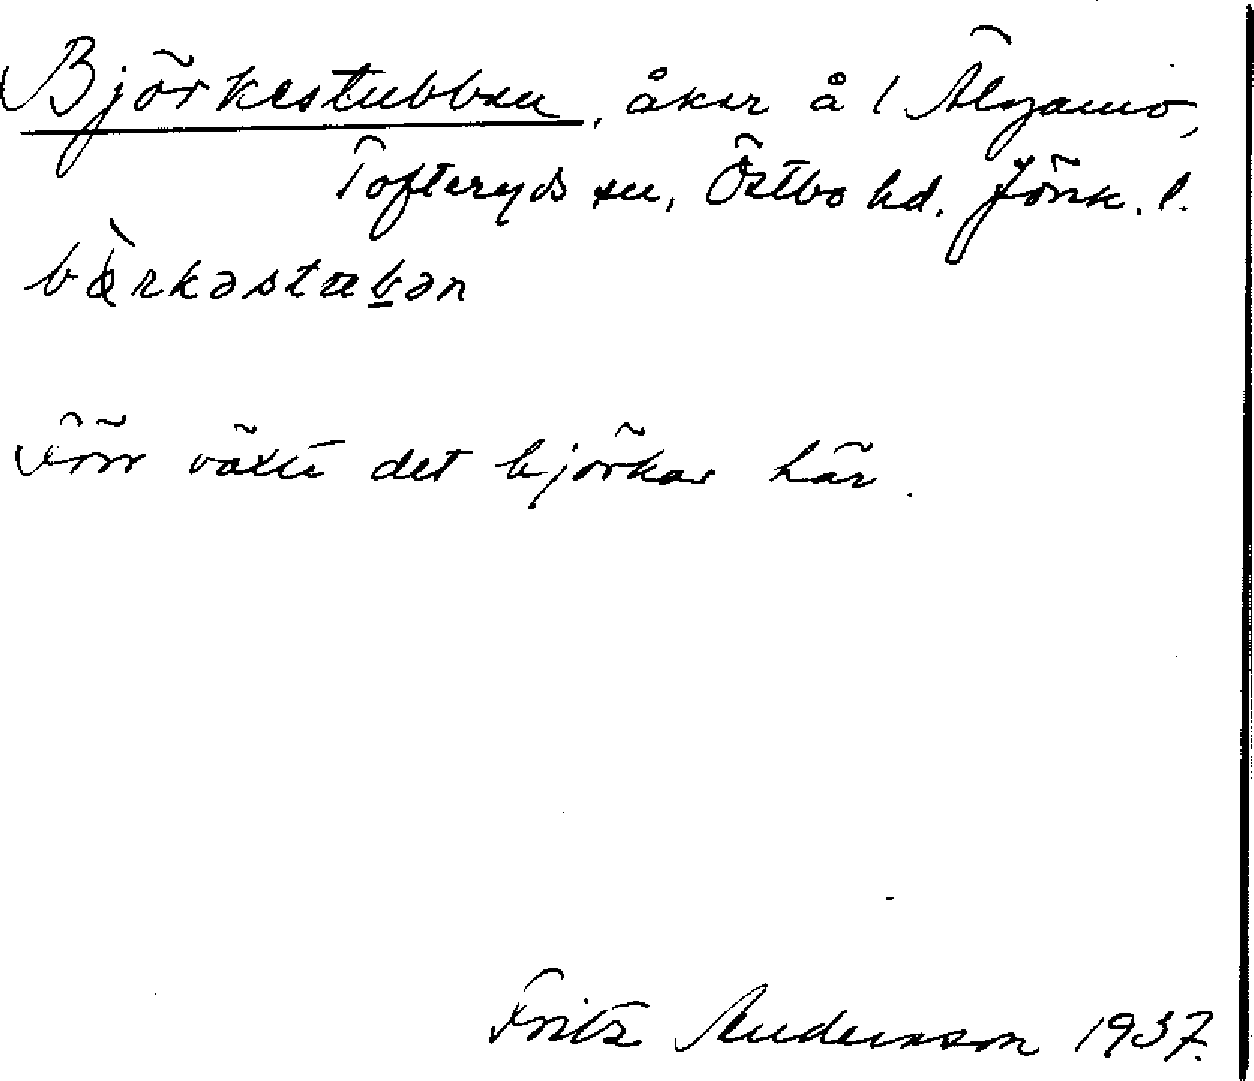 Björkestubben, åker å 1 Älgamo,
Tofteryds sn, Östbo hd. Jönk. l.
bàrkəstabən
Förr växte det björkar här.
Fritz Andersson 1937.